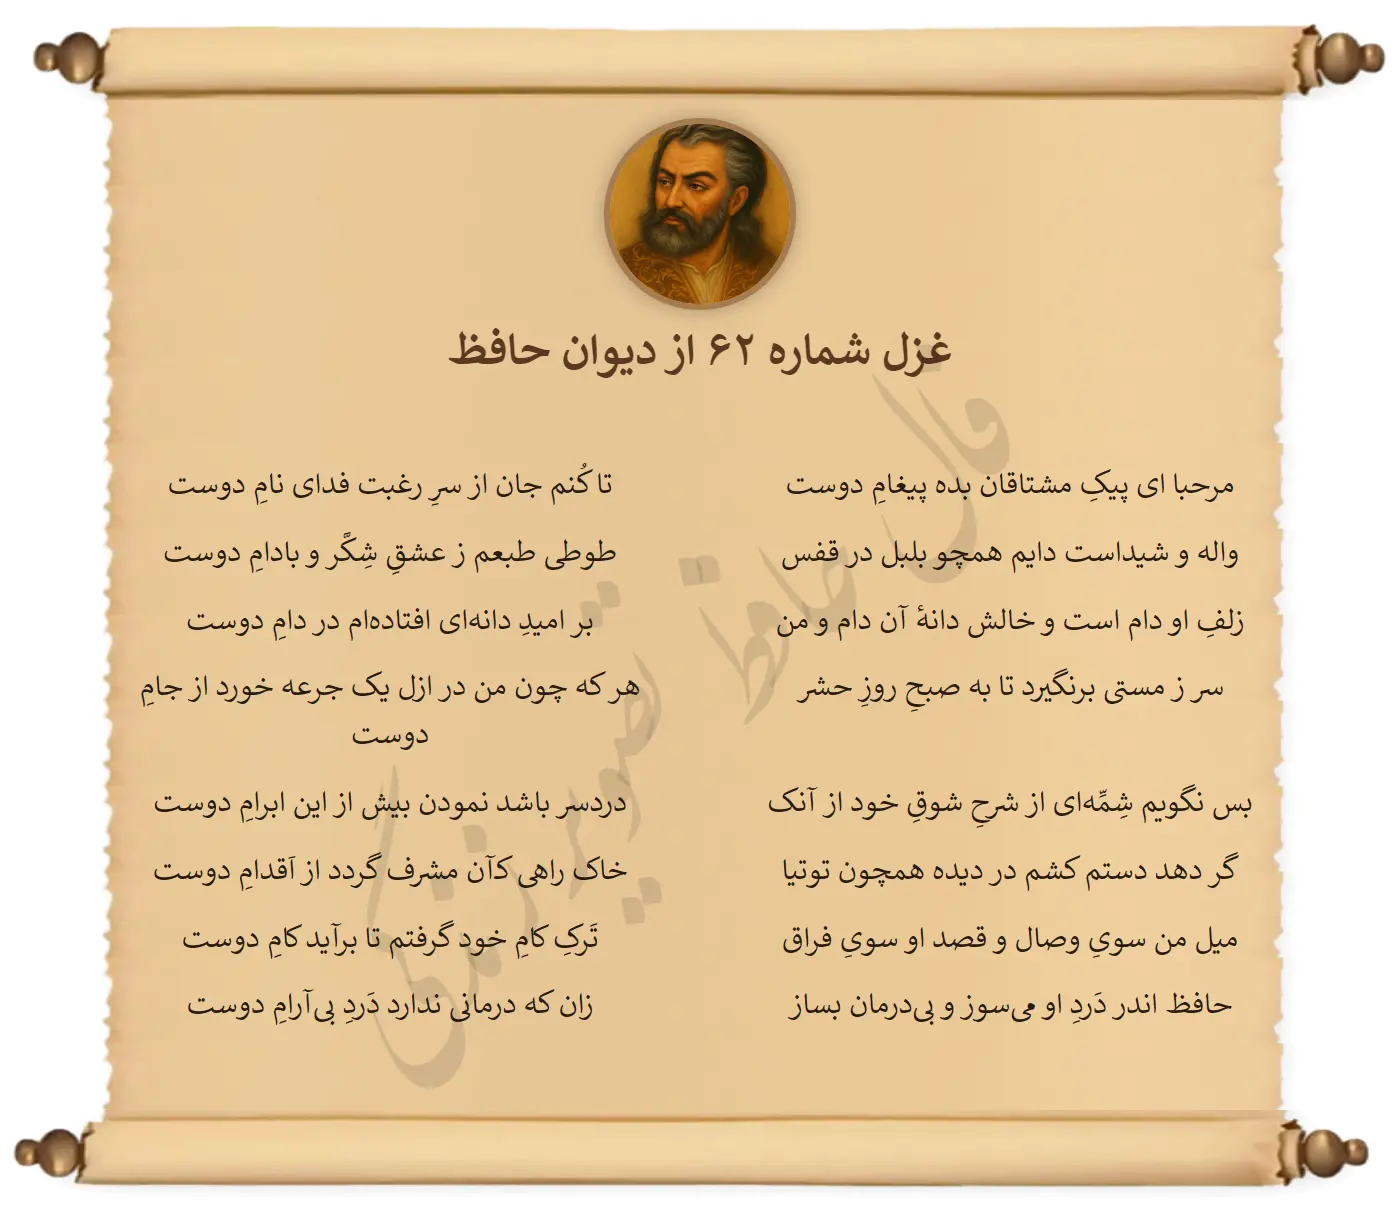 غزل شماره ۶۲ از دیوان حافظ
مرحبا ای پیکِ مشتاقان بده پیغامِ دوست
تا کُنم جان از سرِ رغبت فدای نامِ دوست
واله و شیداست دایم همچو بلبل در قفس
طوطی طبعم ز عشقِ شِکَّر و بادامِ دوست
زلفِ او دام است و خالش دانهٔ آن دام و من
بر امیدِ دانه‌ای افتاده‌ام در دامِ دوست
سر ز مستی برنگیرد تا به صبحِ روزِ حشر
هر که چون من در ازل یک جرعه خورد از جامِ
دوست
بس نگویم شِمِّه‌ای از شرحِ شوقِ خود از آنک
دردسر باشد نمودن بیش از این ابرامِ دوست
گر دهد دستم کشم در دیده همچون توتیا
خاک راهی کآن مشرف گردد از اَقدامِ دوست
میل من سویِ وصال و قصد او سویِ فراق
تَرکِ کامِ خود گرفتم تا برآید کامِ دوست
حافظ اندر دَردِ او می‌سوز و بی‌درمان بساز
زان که درمانی ندارد دَردِ بی‌آرامِ دوست
فال حافظ تصویر زندگی